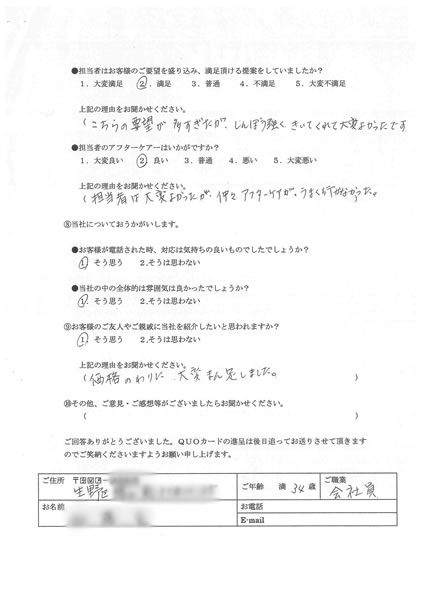 ●担当者はお客様のご要望を盛り込み、満足頂ける提案をしていましたか?
1.大変満足 ②.満足 3.普通 4.不満足 5.大変不満足
上記の理由をお聞かせください。
(こちらの要望が多すぎたが、しんぼう強くきいてくれて大変よかったです
●担当者のアフターケアーはいかがですか?
1.大変良い ②良い 3.普通 4.悪い 5.大変悪い
上記の理由をお聞かせください。
(担当者は大変よかったが、アフターケアが、うまく行かなかった。
⑧当社についておうかがいします。
●お客様が電話された時、対応は気持ちの良いものでしたでしょうか?
① そう思う 2.そうは思わない
●当社の中の全体的は雰囲気は良かったでしょうか?
① そう思う 2.そうは思わない
⑨お客様のご友人やご親戚に当社を紹介したいと思われますか?
① そう思う 2.そうは思わない
上記の理由をお聞かせください。
(価格のわりに、大変まん足しました。 )
⑩その他、ご意見・ご感想等がございましたらお聞かせください。
( )
ご回答ありがとうございました。QUOカードの進呈は後日追ってお送りさせて頂きます
のでご笑納くださいますようお願い申し上げます。
ご住所 〒 生野区
ご年齢 満 34 歳
ご職業 会社員
お名前
お電話
E-mail